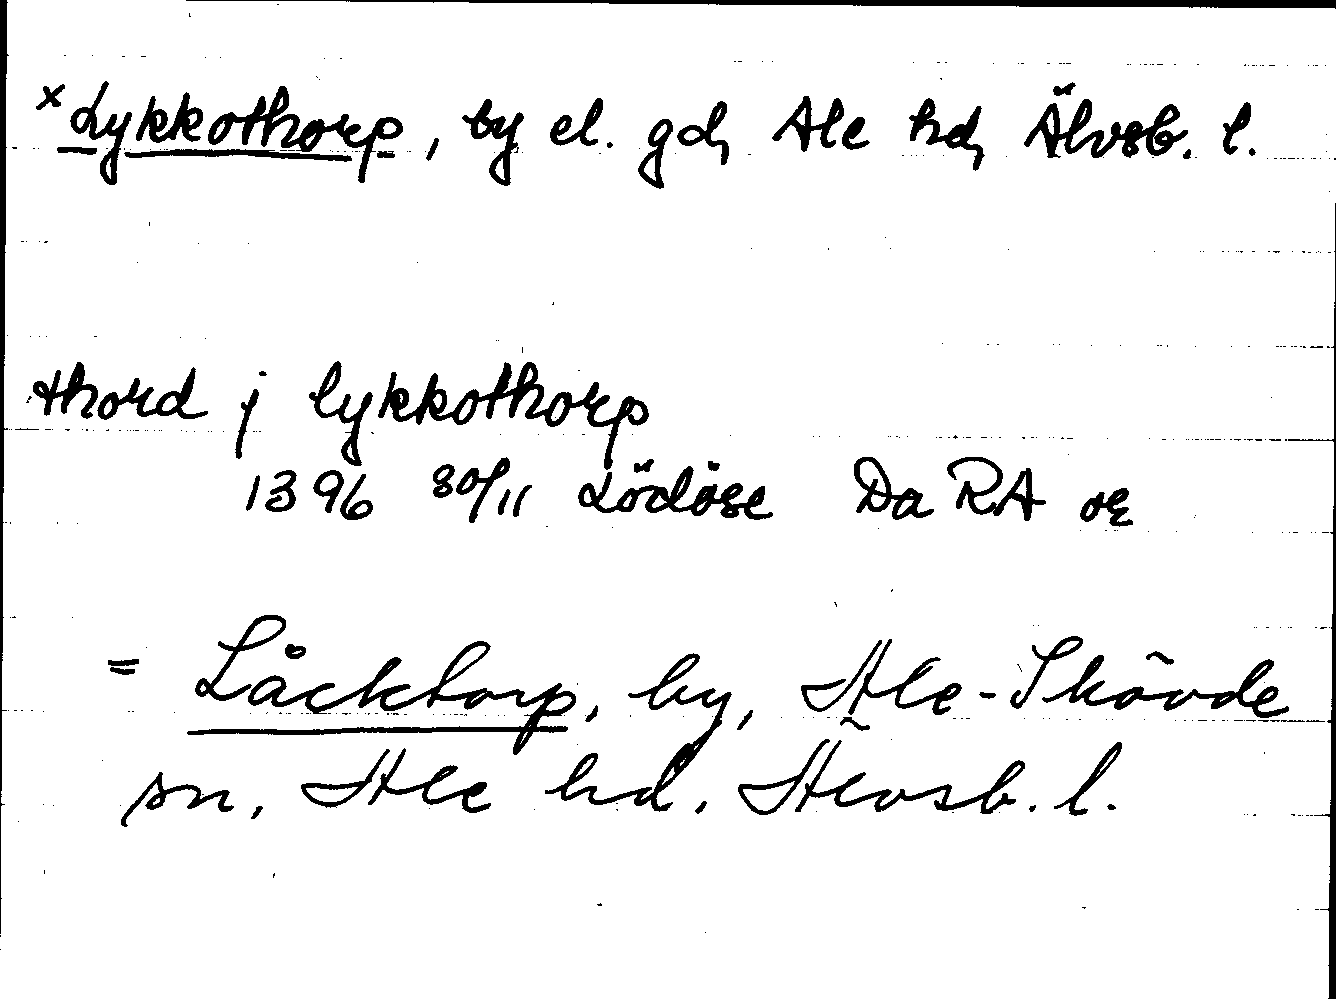 ×Lykkothorp, by el. gd, Ale hd, Älvsb. l.
thord j lykkothorp
1396 30/11 Lödöse Da RA or
= Låcktorp, by, Ale-Skövde
sn, Ale hd. Älvsb. l.